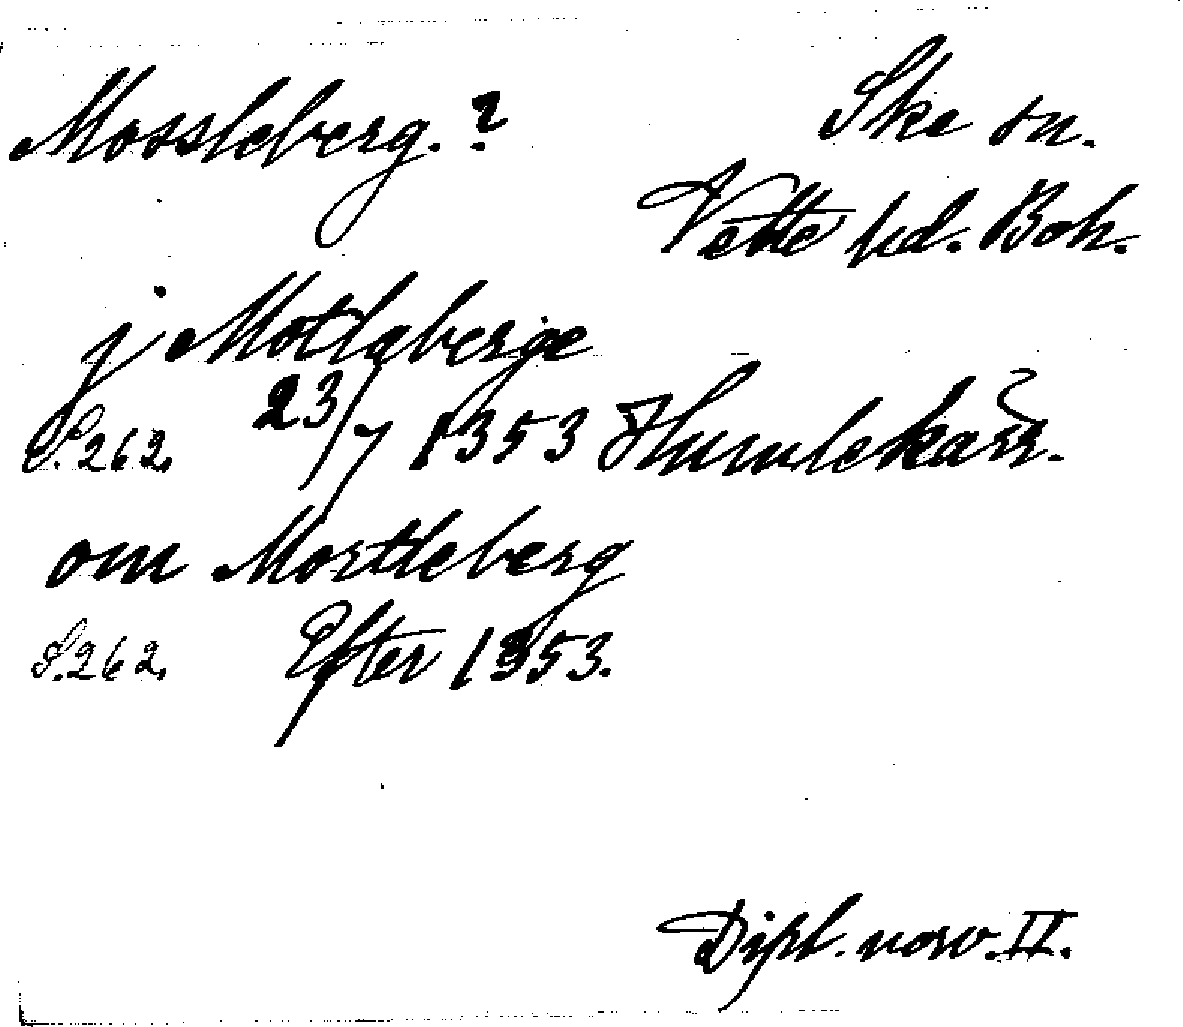 Mossleberg.? Skee sn.
Vette hd. Boh.
j Motlgberge
S. 262. 23/7 1353 Humlekärr.
om Mortleberg
S. 262. Efter 1353.
Dipl. norv. II.